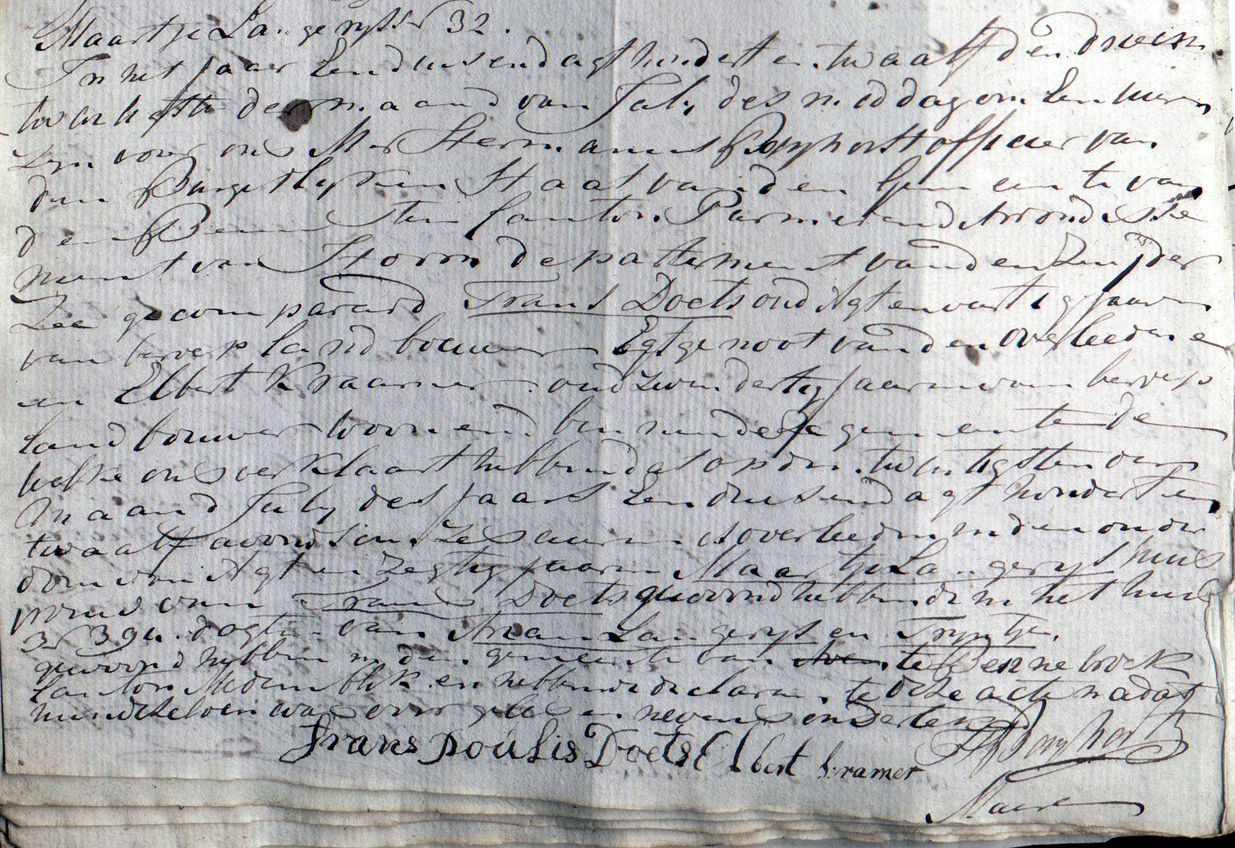 Maartje Langerijs N 32.
In het jaar Eenduisend agt hondert en twaalf den drie en
twentigste der maand van July des middag om Een uuren
zijn voor ons Mr Hermanus Berghorst officier van
den Burgerlyken Staat van den Gemeente van
den Beemster Canton Purmerend Arrondisse
ment van Hoorn departement van den Zuijder
Zee gecompareerd Frans Doets oud Agt en vertig Jaaren
van beroep landbouwer Egtgenoot van den overleedene
en Elbert Kraamer oud zwendertig Jaaren van beroep
landbouwer woonend binnen deze gemeente de
welke ons verklaart hebben dat op den twentigsten der
Maand July des Jaars Eenduisend agt hondert en
twaalf avonds om zes uuren is overleeden in den ouder
dom van Agt en Zegtig Jaaren Maartje Langerijs huis
vrouw van Frans Doets gewoond hebbende in het huis
N 394. dogter van Arean Langerijs en Tryntje.
gewoond hebben in den gemeente van te Bennebroek
Canton Medemblik en hebben de declaranten deze acte nadat
hun dezelven was voorgeleesen nevens ons Getekend
Frans poulis Doets Elbert kramer HBerghorst
Maire